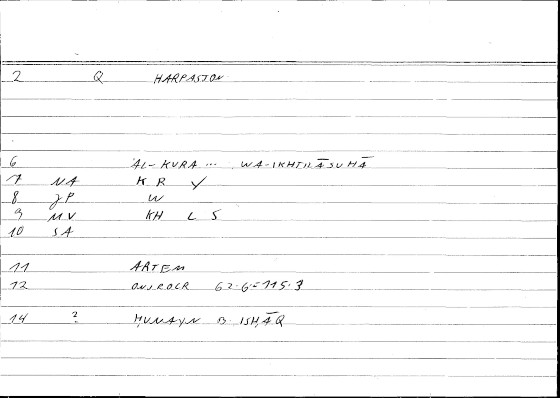 2 Q HARPASTON
6 AL-KURA ... WA-IKHTILĀSUHĀ
7 NA K R Y
8 JP W
9 MV KH L S
10 SA
11 ARTEM
12 ONIROCR 62.6=115.3
14 ? ḤUNAYN B. ISḤĀQ